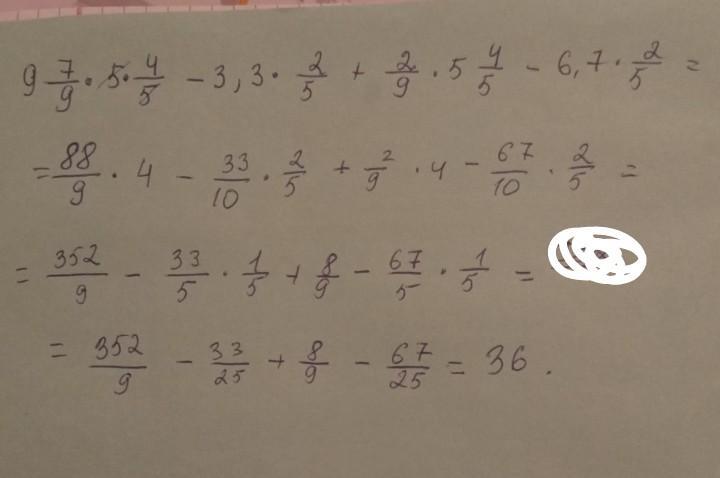 9 7/9 · 5 · 4/5 - 3,3 · 2/5 + 2/9 · 5 4/5 - 6,7 · 2/5 =
= 88/9 · 4 - 33/10 · 2/5 + 2/9 · 4 - 67/10 · 2/5 =
= 352/9 - 33/5 · 1/5 + 8/9 - 67/5 · 1/5 =
= 352/9 - 33/25 + 8/9 - 67/25 = 36.